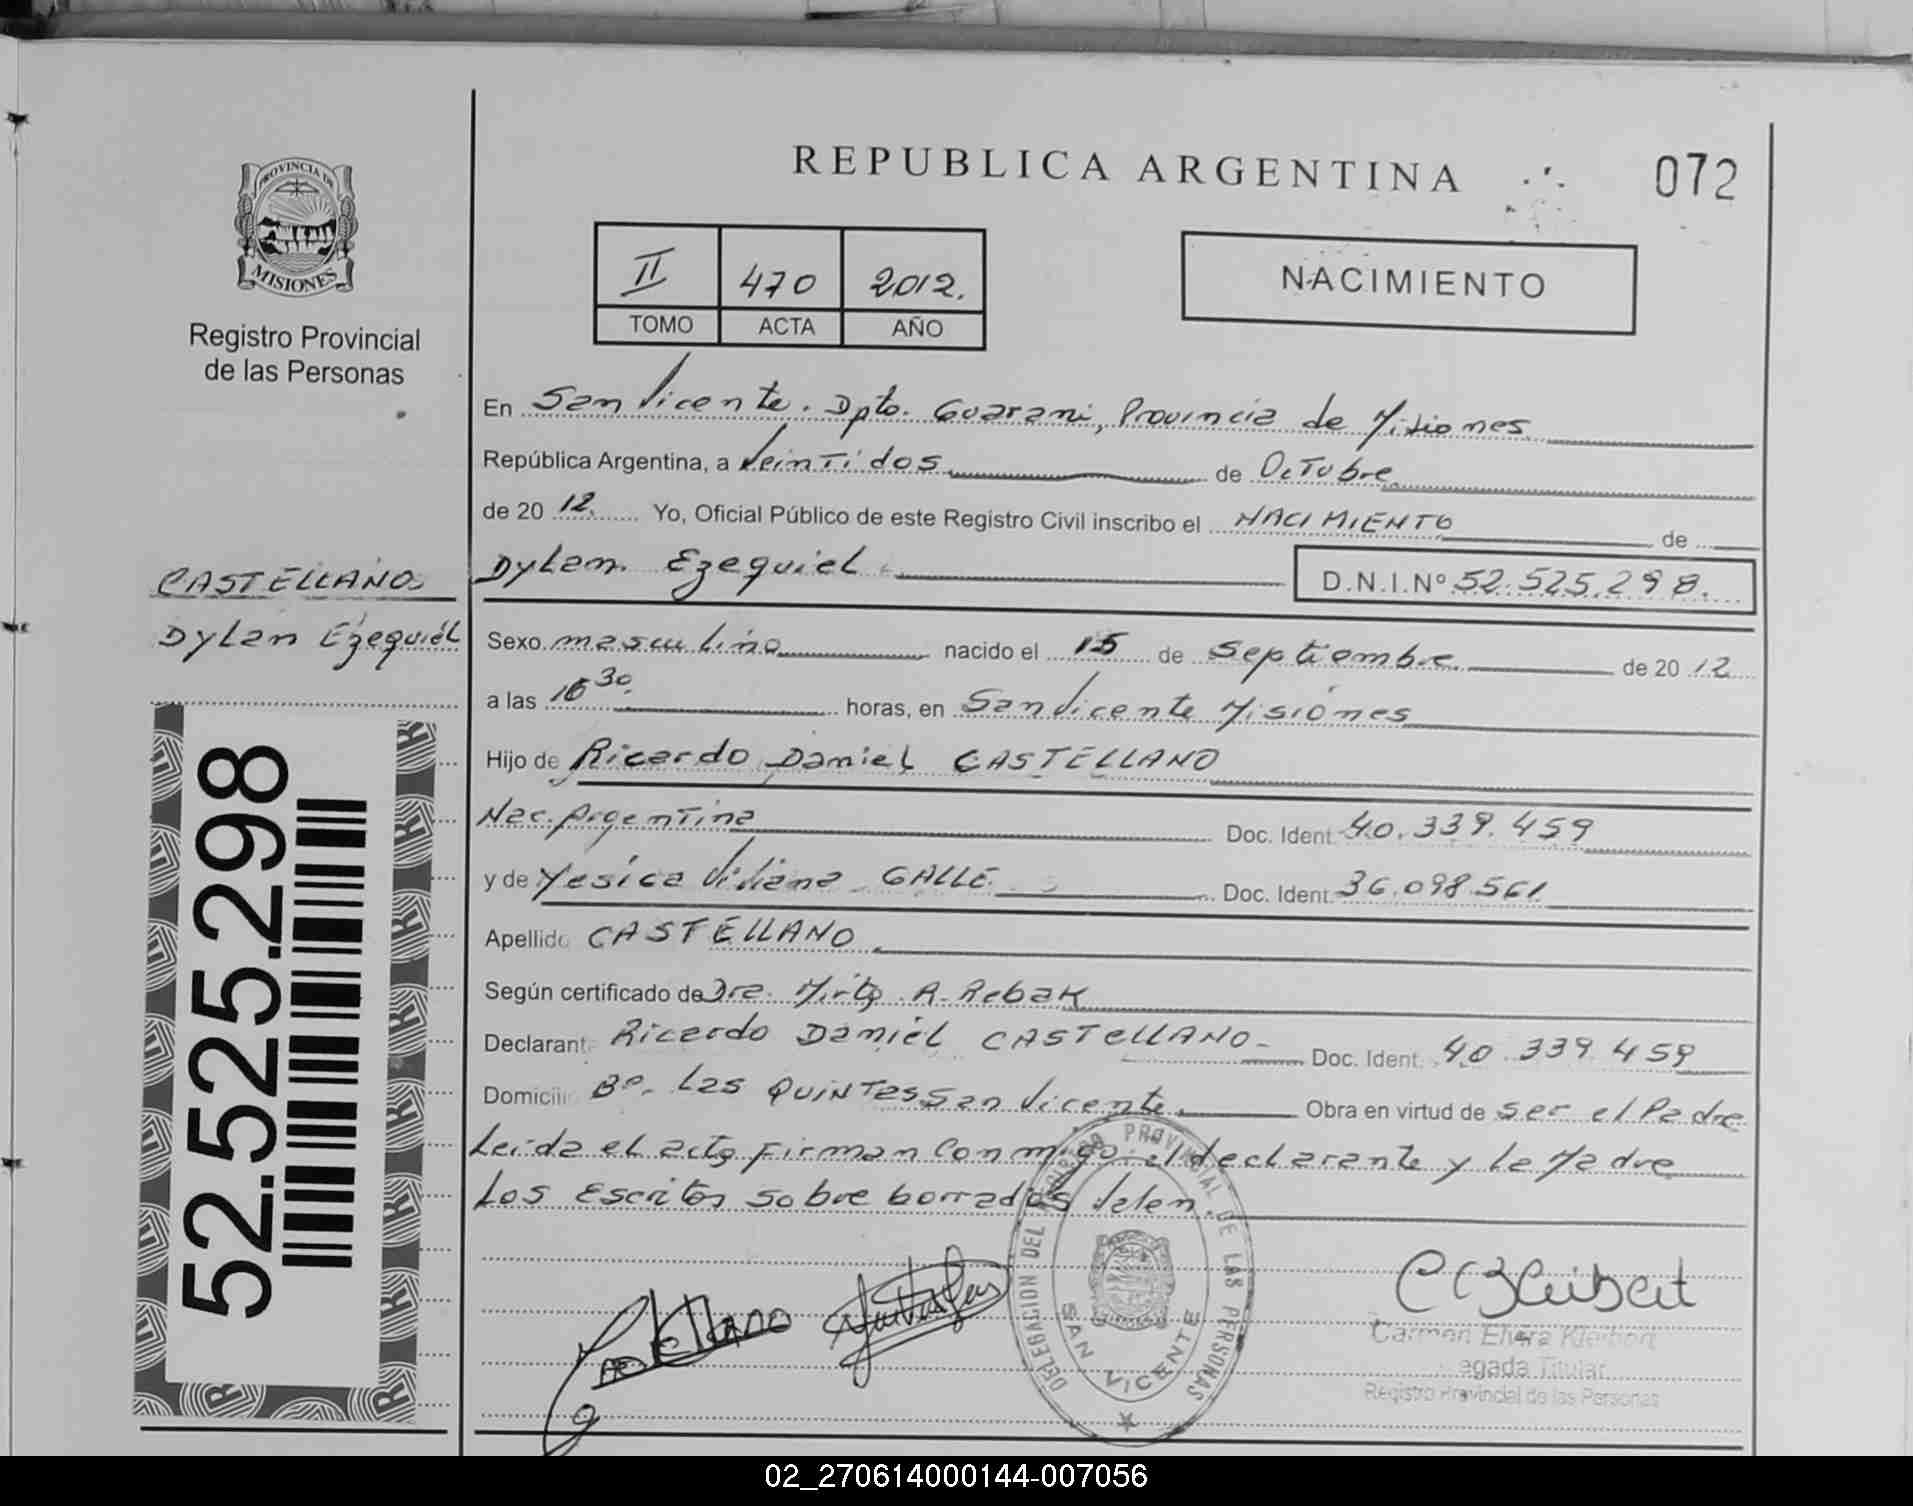 REPUBLICA ARGENTINA
072
PROVINCIA DE
MISIONES
Registro Provincial
de las Personas
II 470 2012.
TOMO ACTA AÑO
NACIMIENTO
En San Vicente. Dpto. Guarani, Provincia de Misiones
República Argentina, a Veintidos de Octubre
de 20 12. Yo, Oficial Público de este Registro Civil inscribo el NACIMIENTO de
Dylan Ezequiel D.N.I.Nº 52.525.298.
CASTELLANO
Dylan Ezequiel
Sexo masculino nacido el 15 de Septiembre de 20 12
a las 16 30. horas, en San Vicente Misiones
Hijo de Ricardo Daniel CASTELLANO
Nac. Argentina Doc. Ident. 40.339.459
y de Yesica Viviana GALLE Doc. Ident. 36.098.561.
Apellido CASTELLANO
Según certificado de Dra. Mirta A. Rebak
Declarant Ricardo Daniel CASTELLANO- Doc. Ident. 40.339.459
Domicili Bº. Las QUINTAS San Vicente. Obra en virtud de ser el Padre
Leida el acta Firman Conmigo el declarante y la Madre
Los Escritos sobre borrados Valen.
52.525.298
DELEGACION DEL REGISTRO PROVINCIAL DE LAS PERSONAS
SAN VICENTE
Carmen Elvira Kleibert
egada Titular
Registro Provincial de las Personas
02_270614000144-007056